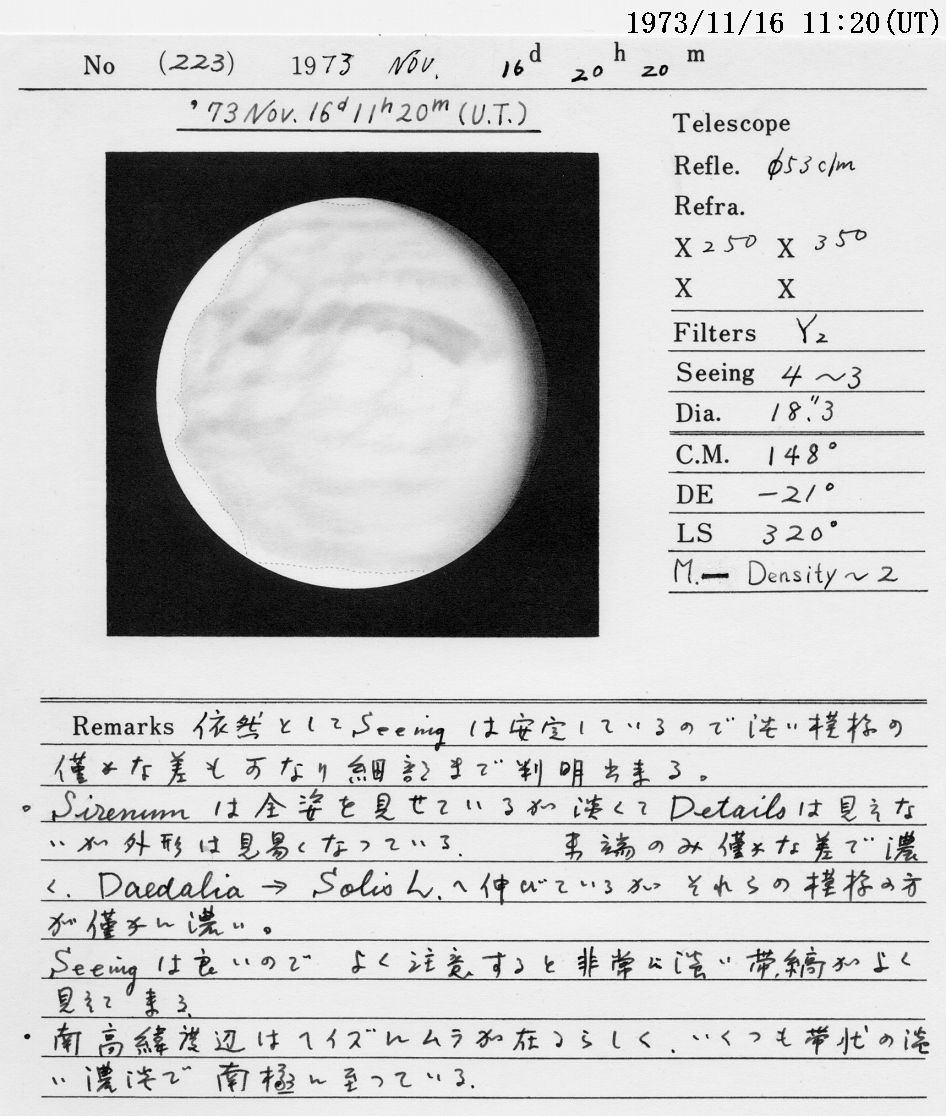 1973/11/16 11:20(UT)
No (223) 1973 Nov. 16d 20h 20m
'73 Nov. 16d 11h 20m (U.T.)
Telescope
Refle. φ53c/m
Refra.
X 250 X 350
X X
Filters Y2
Seeing 4~3
Dia. 18."3
C.M. 148°
DE -21°
LS 320°
M.— Density~2
Remarks 依然としてSeeingは安定しているので淡い模様の
僅かな差も可なり細部まで判明出来る。
・Sirenumは全姿を見せているが淡くてDetailsは見えな
いが外形は見易くなっている. 東端のみ僅かな差で濃
く. Daedalia → Solis L.へ伸びているが それらの模様の方
が僅かに濃い。
Seeingは良いので よく注意すると非常に淡い帯,縞がよく
見えて来る.
・南高緯度辺はヘイズにムラが在るらしく.いくつも帯状の淡
い濃淡で 南極に至っている.